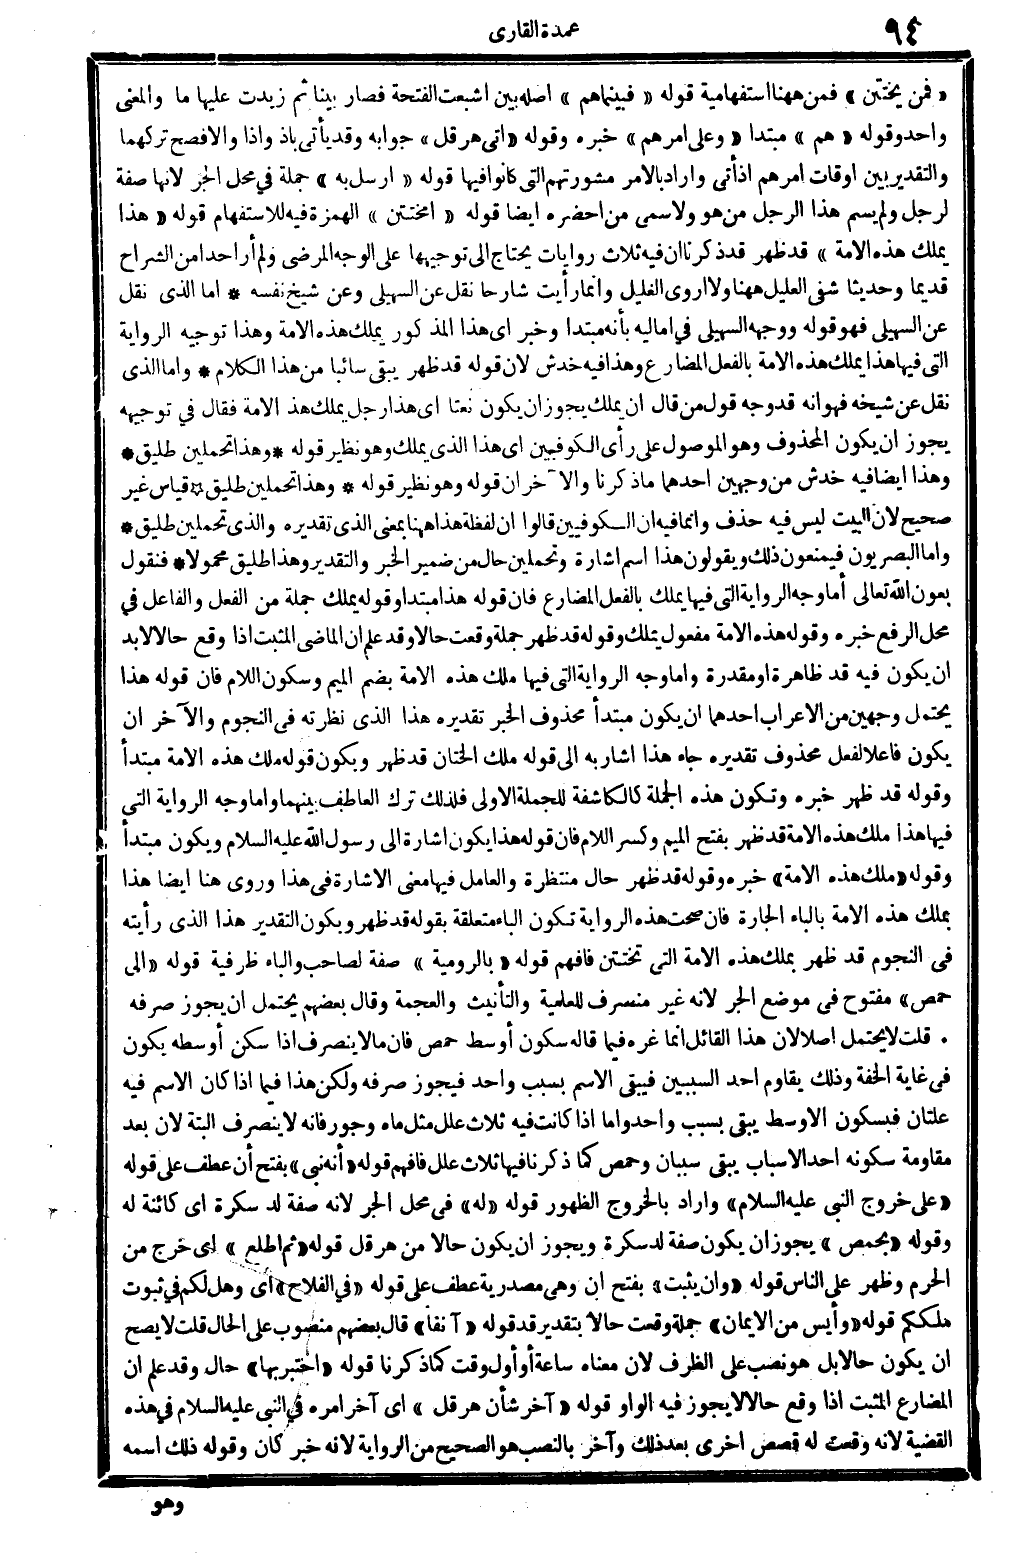 ٩٤
عمدة القارى
« فمن يختتن » فمن ههنا استفهامية قوله « فبينماهم » اصله بين اشبعت الفتحة فصار بينا ثم زيدت عليها ما والمعنى
واحد وقوله « هم » مبتدا « وعلى امرهم » خبره وقوله « اتى هرقل » جوابه وقد يأتى باذ واذا والافصح تركهما
والتقدير بين اوقات امرهم اذ أتى واراد بالامر مشورتهم التى كانوا فيها قوله « ارسل به » جملة في محل الجر لانها صفة
لرجل ولم يسم هذا الرجل من هو ولا سمى من احضره ايضا قوله « امختتن » الهمزة فيه للاستفهام قوله « هذا
يملك هذه الامة » قد ظهر قد ذكرنا ان فيه ثلاث روايات يحتاج الى توجيهها على الوجه المرضى ولم أر احدا من الشراح
قديما وحديثا شفى العليل ههنا ولا اروى الغليل وانما رأيت شارحا نقل عن السهيلى وعن شيخ نفسه * اما الذى نقل
عن السهيلى فهو قوله ووجهه السهيلى في اماليه بأنه مبتدا وخبر اى هذا المذكور يملك هذه الامة وهذا توجيه الرواية
التى فيها هذا يملك هذه الامة بالفعل المضارع وهذا فيه خدش لان قوله قد ظهر يبقى سائبا من هذا الكلام * واما الذى
نقل عن شيخه فهو انه قد وجه قول من قال ان يملك يجوز ان يكون نعتا اى هذا رجل يملك هذ الامة فقال في توجيهه
يجوز ان يكون المحذوف وهو الموصول على رأى الكوفيين اى هذا الذى يملك وهو نظير قوله * وهذا تحملين طليق *
وهذا ايضا فيه خدش من وجهين احدهما ماذكرنا والا خر ان قوله وهو نظير قوله * وهذا تحملين طليق * قياس غير
صحيح لان البيت ليس فيه حذف وانما فيه ان الكوفيين قالوا ان لفظة هذا ههنا بمعنى الذى تقديره والذى تحملين طليق *
واما البصريون فيمنعون ذلك ويقولون هذا اسم اشارة وتحملين حال من ضمير الخبر والتقدير وهذا طليق محمولا * فنقول
بعون الله تعالى أما وجه الرواية التى فيها يملك بالفعل المضارع فان قوله هذا مبتدا وقوله يملك جملة من الفعل والفاعل في
محل الرفع خبره وقوله هذه الامة مفعول يملك وقوله قد ظهر جملة وقعت حالا وقد علم ان الماضى المثبت اذا وقع حالا لابد
ان يكون فيه قد ظاهرة او مقدرة واما وجه الرواية التى فيها ملك هذه الامة بضم الميم وسكون اللام فان قوله هذا
يحتمل وجهين من الاعراب احدهما ان يكون مبتدأ محذوف الخبر تقديره هذا الذى نظرته فى النجوم والآخر ان
يكون فاعلا لفعل محذوف تقديره جاء هذا اشار به الى قوله ملك الختان قد ظهر ويكون قوله ملك هذه الامة مبتدأ
وقوله قد ظهر خبره وتكون هذه الجملة كالكاشفة للجملة الاولى فلذلك ترك العاطف بينهما واما وجه الرواية التى
فيها هذا ملك هذه الامة قد ظهر بفتح الميم وكسر اللام فان قوله هذا يكون اشارة الى رسول الله عليه السلام ويكون مبتدأ
وقوله « ملك هذه الامة » خبره وقوله قد ظهر حال منتظرة والعامل فيها معنى الاشارة فى هذا وروى هنا ايضا هذا
بملك هذه الامة بالباء الجارة فان صحت هذه الرواية تكون الباء متعلقة بقوله قد ظهر ويكون التقدير هذا الذى رأيته
فى النجوم قد ظهر بملك هذه الامة التى تختتن فافهم قوله « بالرومية » صفة لصاحب والباء ظرفية قوله « الى
حمص » مفتوح فى موضع الجر لانه غير منسرف للعلمية والتأنيث والعجمة وقال بعضهم يحتمل ان يجوز صرفه
. قلت لا يحتمل اصلا لان هذا القائل انما غره فيما قاله سكون أوسط حمص فان مالا ينصرف اذا سكن أوسطه يكون
فى غاية الخفة وذلك يقاوم احد السببين فيبقى الاسم بسبب واحد فيجوز صرفه ولكن هذا فيما اذا كان الاسم فيه
علتان فبسكون الاوسط يبقى بسبب واحد واما اذا كانت فيه ثلاث علل مثل ماه وجور فانه لا ينصرف البتة لان بعد
مقاومة سكونه احد الاسباب يبقى سببان وحمص كما ذكرنا فيها ثلاث علل فافهم قوله « أنه نبى » بفتح أن عطف على قوله
« على خروج النبى عليه السلام » واراد بالخروج الظهور قوله « له » فى محل الجر لانه صفة لد سكرة اى كائنة له
وقوله « بحمص » يجوز ان يكون صفة لدسكرة ويجوز ان يكون حالا من هرقل قوله « ثم اطلع » اى خرج من
الحرم وظهر على الناس قوله « وان يثبت » بفتح ان وهى مصدرية عطف على قوله « في الفلاح » اى وهل لكم في ثبوت
ملككم قوله « وأيس من الايمان » جملة وقعت حالا بتقدير قد قوله « آنفا » قال بعضهم منصوب على الحال قلت لا يصح
ان يكون حالا بل هو نصب على الظرف لان معناه ساعة أو أول وقت كما ذكرنا قوله « اختبر بها » حال وقد علم ان
المضارع المثبت اذا وقع حالا لا يجوز فيه الواو قوله « آخر شأن هرقل » اى آخر امره في النبى عليه السلام في هذه
القضية لانه وقعت له قصص اخرى بعد ذلك وآخر بالنصب هو الصحيح من الرواية لانه خبر كان وقوله ذلك اسمه
وهو